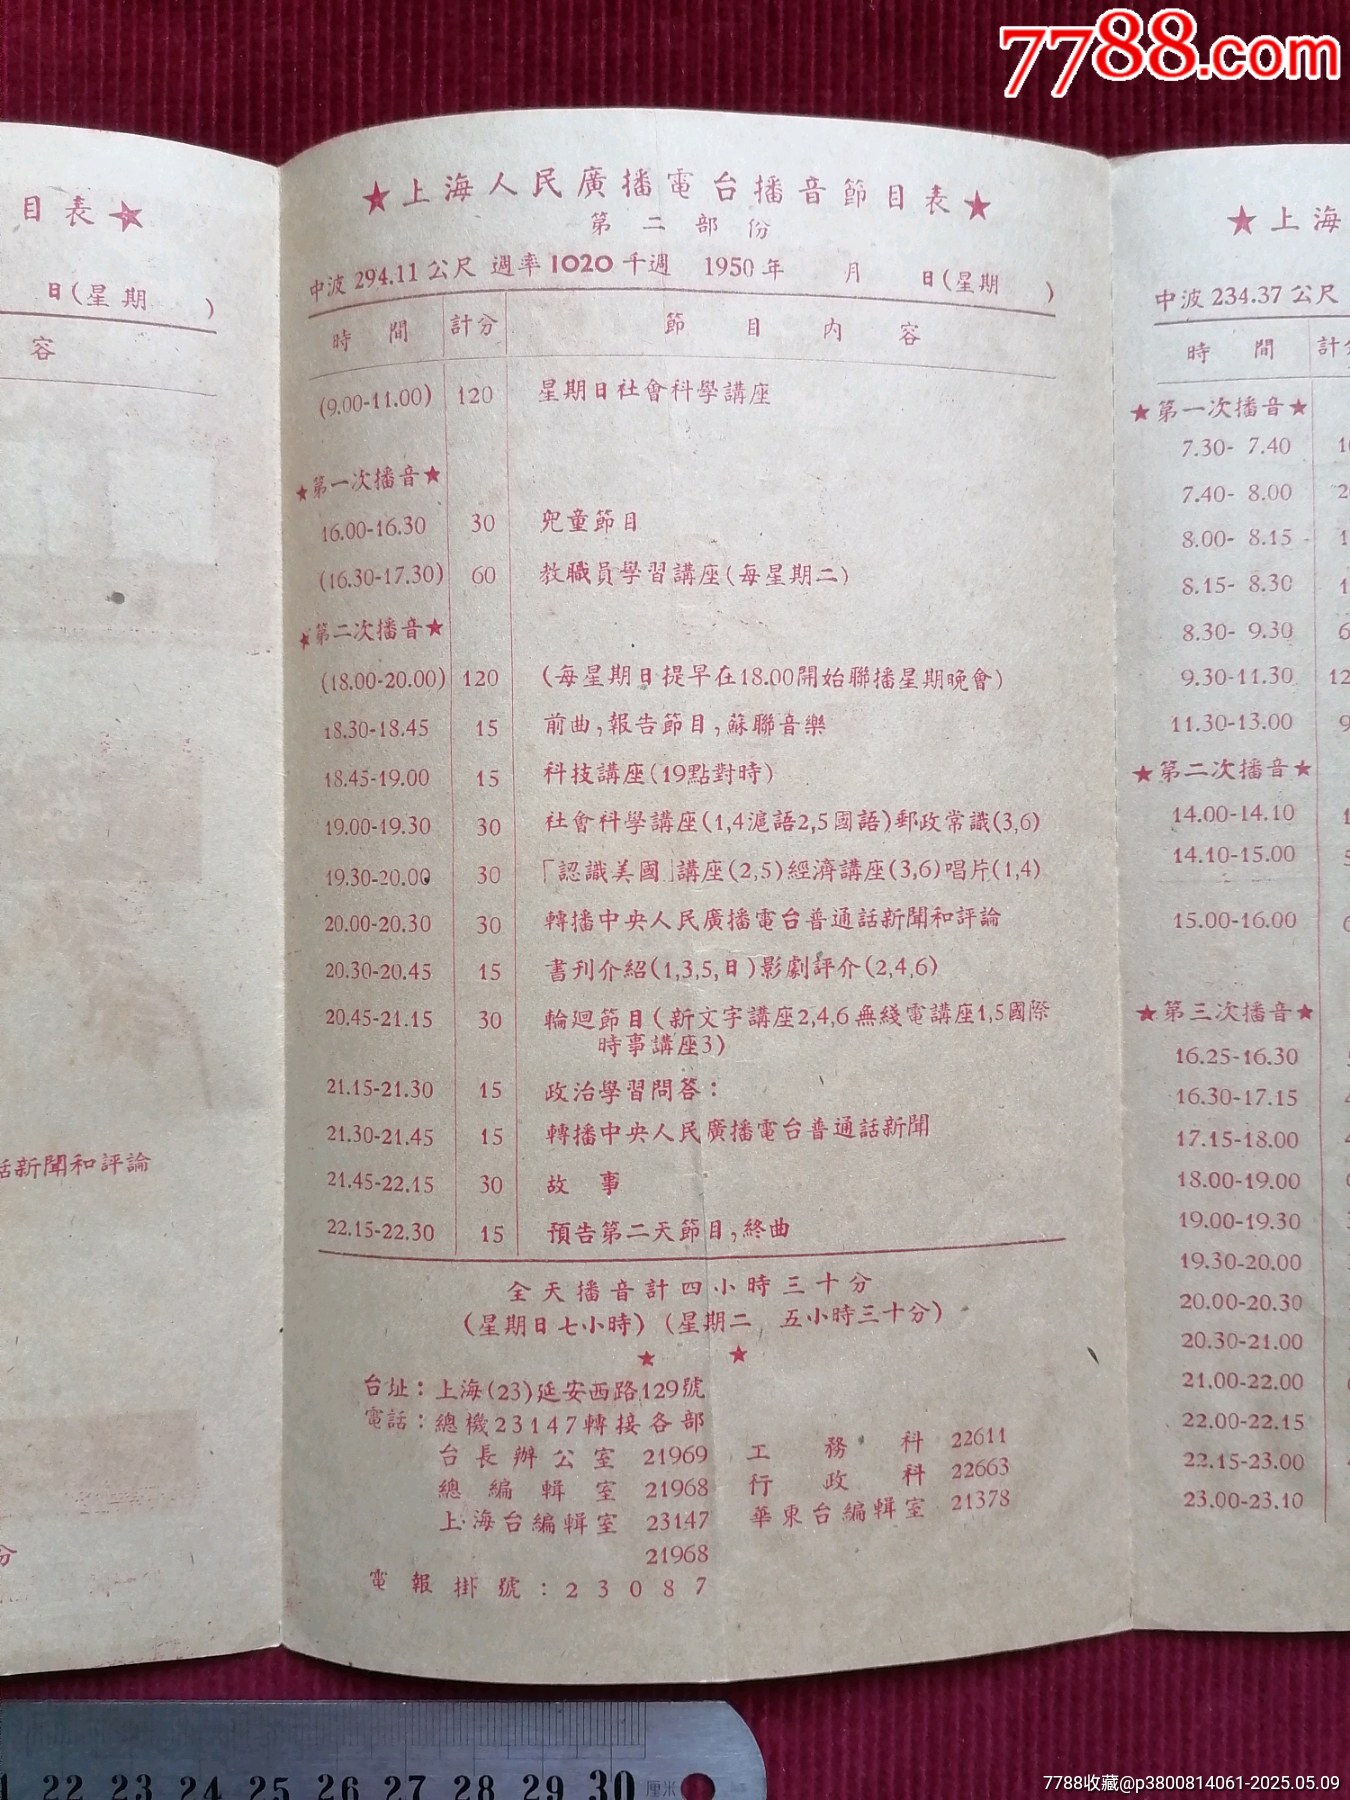 7788.com
目表★
日(星期　　)
容
話新聞和評論
分
★上海人民廣播電台播音節目表★
第二部份
中波 294.11 公尺 週率 1020 千週 1950年 月 日(星期 )
時間 計分 節目內容
(9.00-11.00) 120 星期日社會科學講座
★第一次播音★
16.00-16.30 30 兒童節目
(16.30-17.30) 60 教職員學習講座(每星期二)
★第二次播音★
(18.00-20.00) 120 (每星期日提早在18.00開始聯播星期晚會)
18.30-18.45 15 前曲,報告節目,蘇聯音樂
18.45-19.00 15 科技講座(19點對時)
19.00-19.30 30 社會科學講座(1,4滬語2,5國語)郵政常識(3,6)
19.30-20.00 30 「認識美國」講座(2,5)經濟講座(3,6)唱片(1,4)
20.00-20.30 30 轉播中央人民廣播電台普通話新聞和評論
20.30-20.45 15 書刊介紹(1,3,5,日)影劇評介(2,4,6)
20.45-21.15 30 輪廻節目(新文字講座2,4,6無綫電講座1,5國際
時事講座3)
21.15-21.30 15 政治學習問答:
21.30-21.45 15 轉播中央人民廣播電台普通話新聞
21.45-22.15 30 故事
22.15-22.30 15 預告第二天節目,終曲
全天播音計四小時三十分
(星期日七小時)(星期二 五小時三十分)
★ ★
台址:上海(23)延安西路129號
電話:總機23147轉接各部
台長辦公室 21969 工務科 22611
總編輯室 21968 行政科 22663
上海台編輯室 23147 華東台編輯室 21378
21968
電報掛號:23087
★上海
中波 234.37 公尺
時間 計分
★第一次播音★
7.30- 7.40
7.40- 8.00
8.00- 8.15
8.15- 8.30
8.30- 9.30
9.30-11.30
11.30-13.00
★第二次播音★
14.00-14.10
14.10-15.00
15.00-16.00
★第三次播音★
16.25-16.30
16.30-17.15
17.15-18.00
18.00-19.00
19.00-19.30
19.30-20.00
20.00-20.30
20.30-21.00
21.00-22.00
22.00-22.15
22.15-23.00
23.00-23.10
1 22 23 24 25 26 27 28 29 30 厘米
7788收藏@p3800814061-2025.05.09